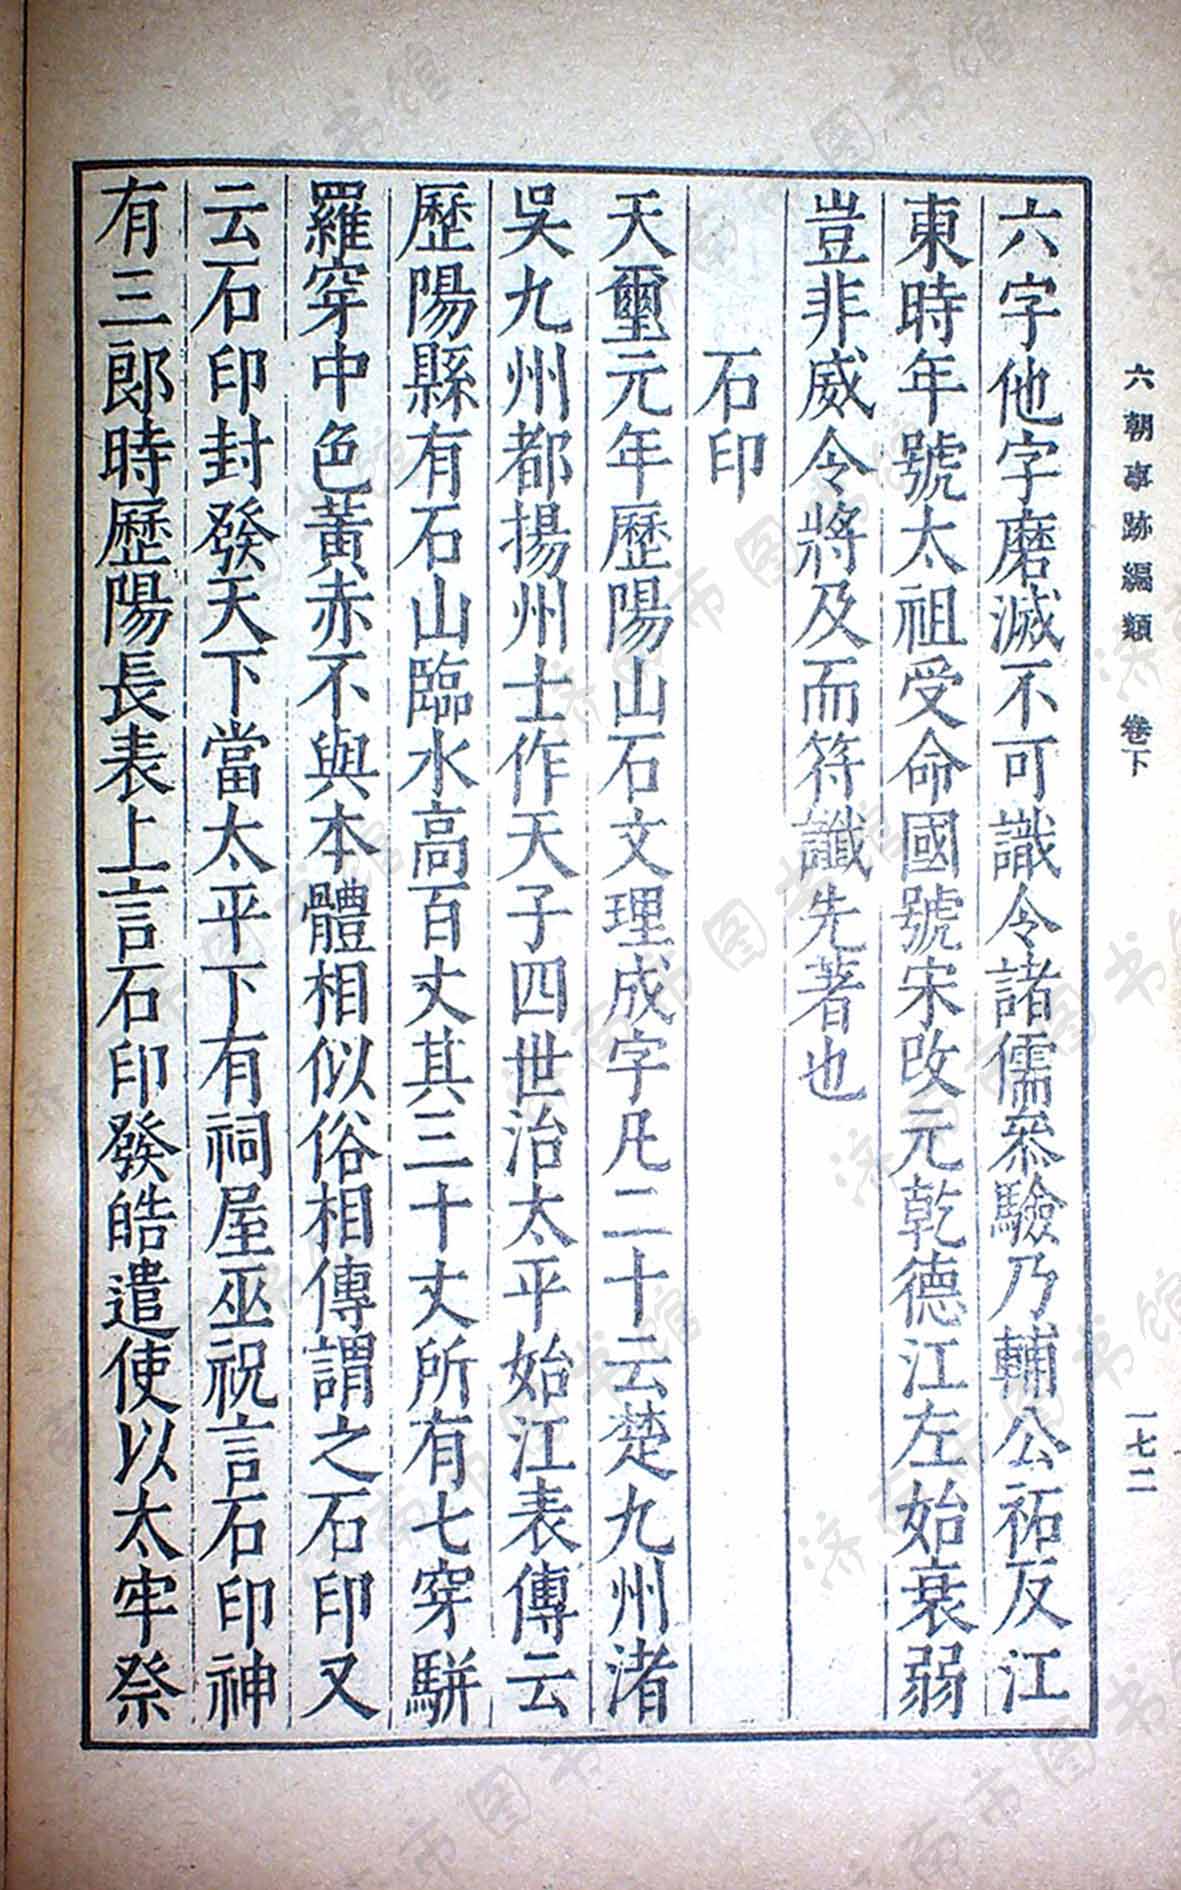 六朝事跡編類 卷下 一七二
六字他字磨滅不可識令諸儒叅驗乃輔公祏反江
東時年號太祖受命國號宋改元乾德江左始衰弱
豈非威令將及而符讖先著也
石印
天璽元年歷陽山石文理成字凡二十云楚九州渚
吳九州都揚州士作天子四世治太平始江表傳云
歷陽縣有石山臨水高百丈其三十丈所有七穿駢
羅穿中色黃赤不與本體相似俗相傳謂之石印又
云石印封發天下當太平下有祠屋巫祝言石印神
有三郎時歷陽長表上言石印發皓遣使以太牢祭
济南市图书馆